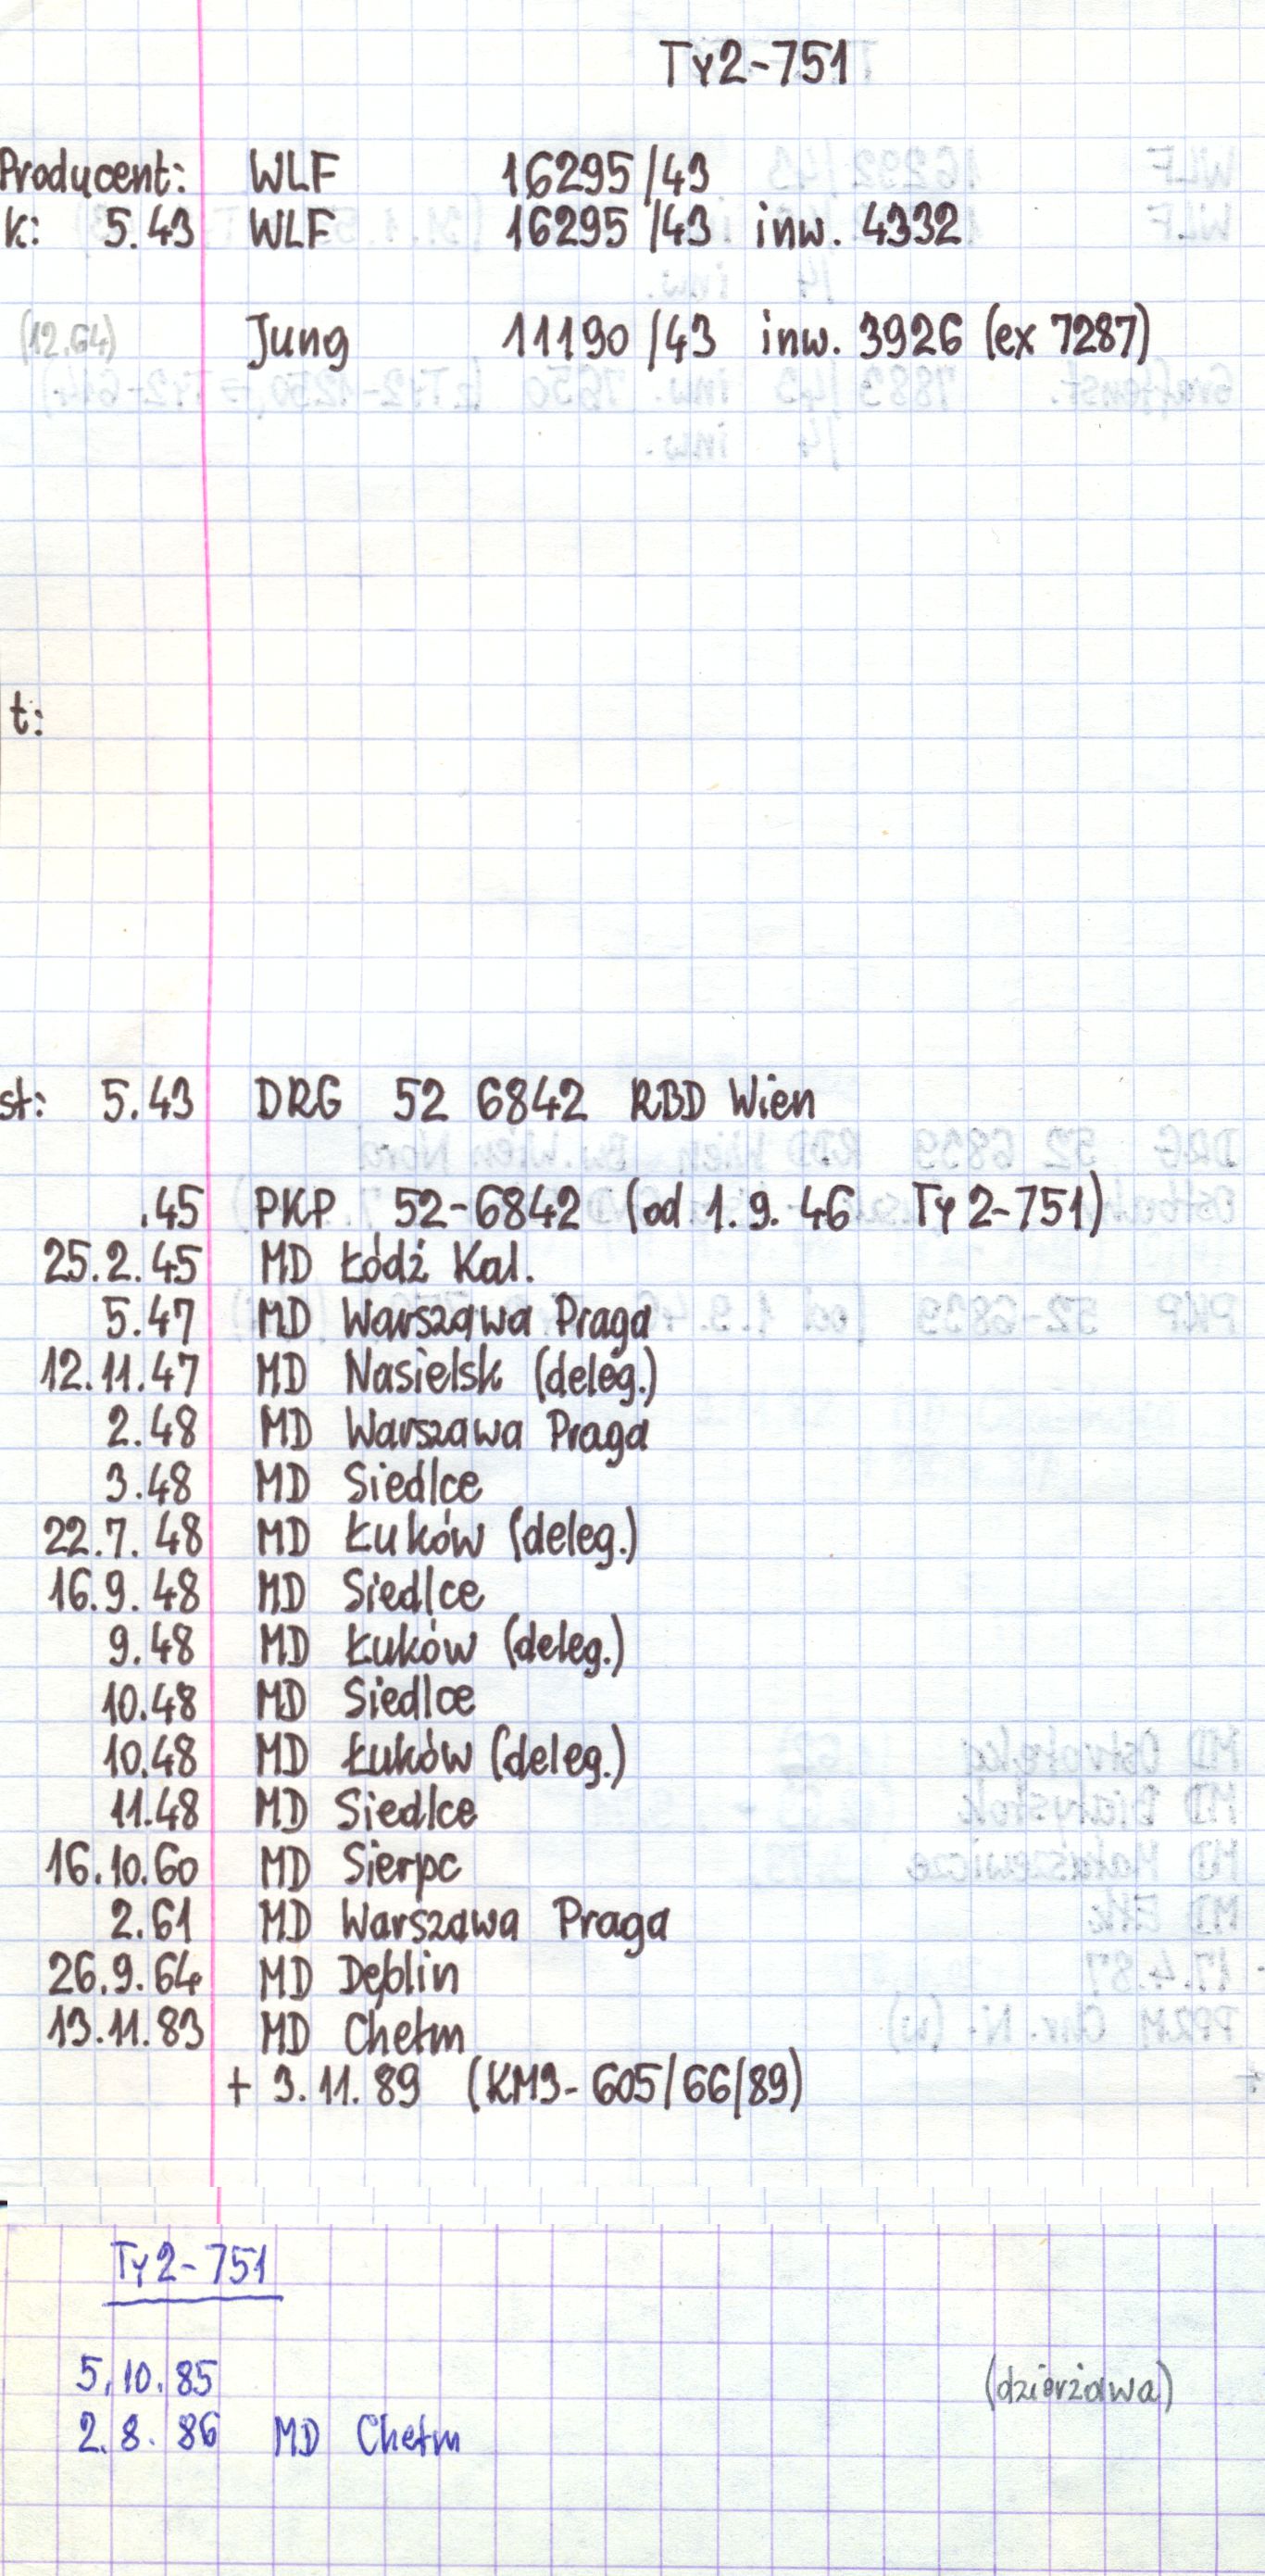 Ty2-751
Producent: WLF 16295/43
k: 5.43 WLF 16295/43 inw. 4332
(12.64) Jung 11190/43 inw. 3926 (ex 7287)
t:
st: 5.43 DRG 52 6842 RBD Wien
.45 PKP 52-6842 (od 1.9.46 Ty2-751)
25.2.45 MD Łódź Kal.
5.47 MD Warszawa Praga
12.11.47 MD Nasielsk (deleg.)
2.48 MD Warszawa Praga
3.48 MD Siedlce
22.7.48 MD Łuków (deleg.)
16.9.48 MD Siedlce
9.48 MD Łuków (deleg.)
10.48 MD Siedlce
10.48 MD Łuków (deleg.)
11.48 MD Siedlce
16.10.60 MD Sierpc
2.61 MD Warszawa Praga
26.9.64 MD Dęblin
13.11.83 MD Chełm
+ 3.11.89 (KM3-605/66/89)
Ty2-751
5.10.85 (dzierżawa)
2.8.86 MD Chełm